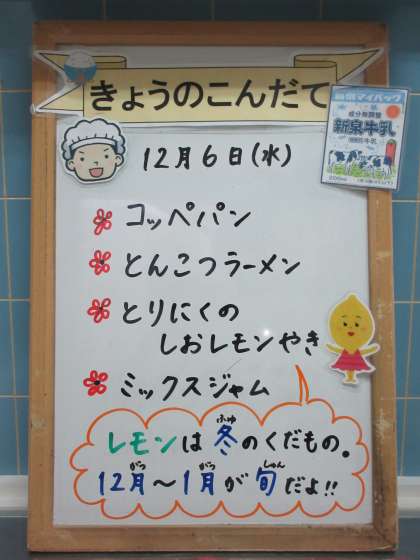 きょうのこんだて
12月6日(水)
新泉牛乳
コッペパン
とんこつラーメン
とりにくの
しおレモンやき
ミックスジャム
レモンは冬のくだもの。
ふゆ
12月～1月が旬だよ!!
がつ がつ しゅん